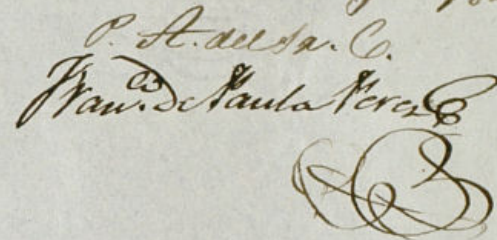 P. A. del Sr. C.
Franco. De Paula Perez